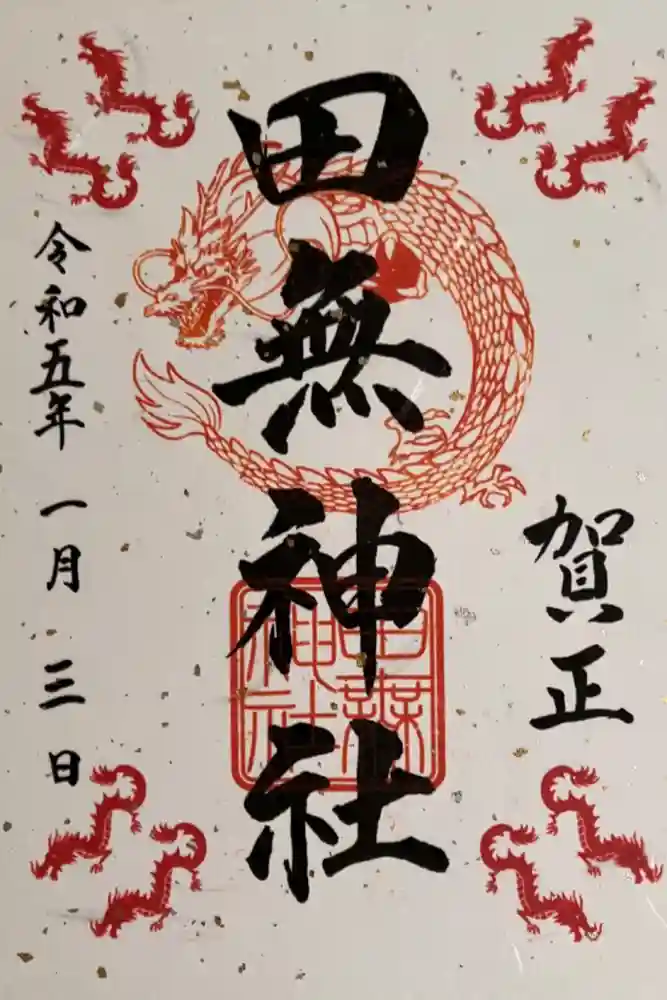 賀正
田無神社
田無神社
令和五年一月三日